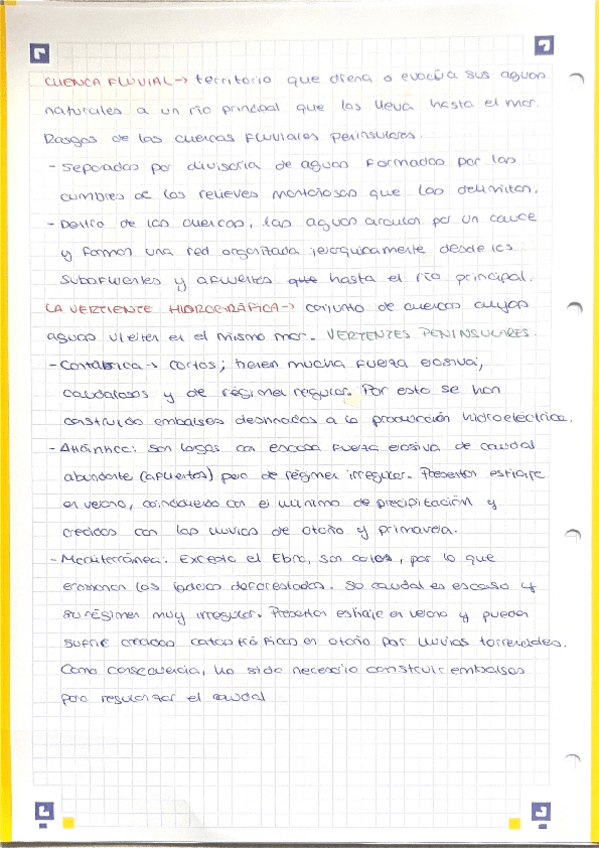 CUENCA FLUVIAL → territorio que drena o evacúa sus aguas
naturales a un río principal que las lleva hasta el mar.
Rasgos de las cuencas fluviales peninsulares.
- Separadas por divisoria de aguas formadas por las
cumbres de los relieves montañosos que las delimitan.
- Dentro de las cuencas, las aguas circulan por un cauce
y forman una red organizada jerárquicamente desde los
subafluentes y afluentes que hasta el río principal.
LA VERTIENTE HIDROGRÁFICA → conjunto de cuencas cuyas
aguas vierten en el mismo mar. VERTIENTES PENINSULARES.
- Cantábrica → cortos; tienen mucha fuerza erosiva;
caudalosos y de régimen regular. Por esto se han
construido embalses destinados a la producción hidroeléctrica.
- Atlántica: son largos con escasa fuerza erosiva de caudal
abundante (afluentes) pero de régimen irregular. Presentan estiaje
en verano, coincidiendo con el mínimo de precipitación y
crecidas con las lluvias de otoño y primavera.
- Mediterránea: Excepto el Ebro, son cortos, por lo que
erosionan las laderas deforestadas. Su caudal es escaso y
su régimen muy irregular. Presentan estiaje en verano y pueden
sufrir crecidas catastróficas en otoño por lluvias torrenciales.
Como consecuencia, ha sido necesario construir embalses
para regularizar el caudal